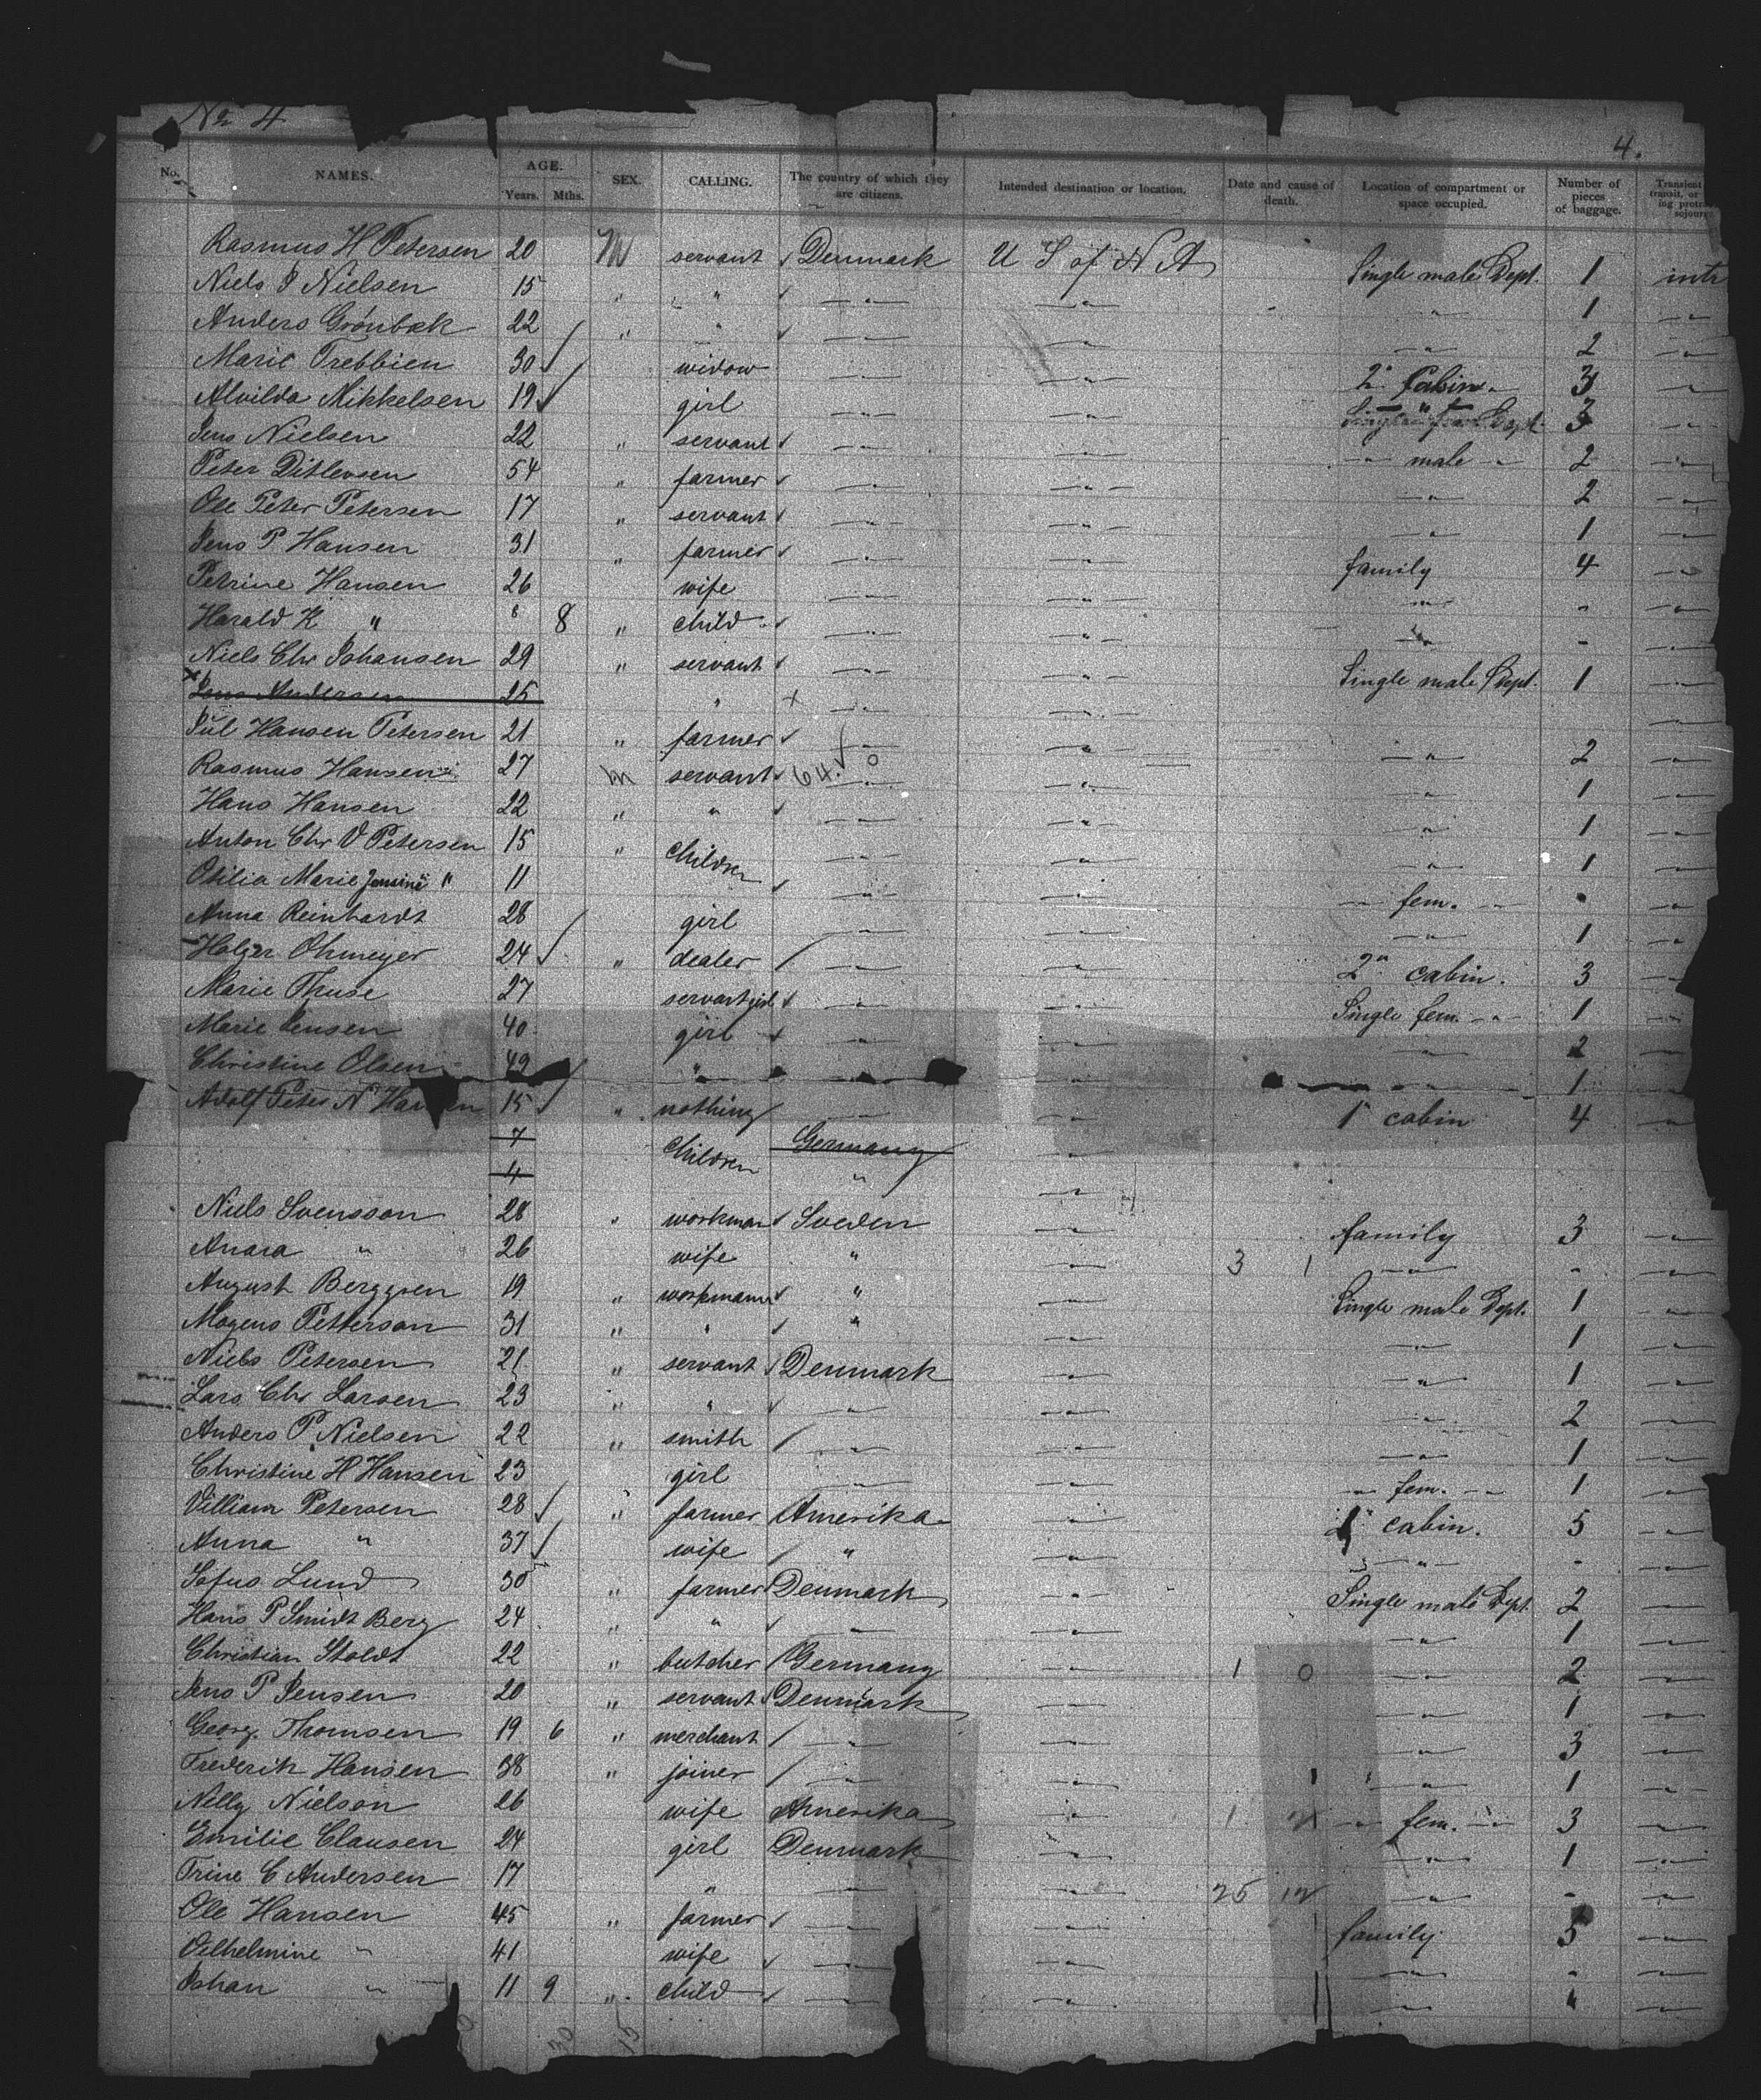 No 4
4.
No. NAMES. AGE. Years. Mths. SEX. CALLING. The country of which they are citizens. Intended destination or location. Date and cause of death. Location of compartment or space occupied. Number of pieces of baggage. Transient
Rasmus H Petersen 20 M servant ✓ Denmark U S of N A Single male Dept. 1 intr
Niels P Nielsen 15 " " ✓ —"— —"— 1 —"—
Anders Grönbæk 22 " " ✓ —"— —"— —"— 2 —"—
Marie Trebbien 30 ✓ widow —"— —"— 2" Cabin 3 —"—
Alvilda Mikkelsen 19 ✓ girl —"— —"— 3 —"—
Jens Nielsen 22 " servant ✓ —"— —"— —"— male —"— 2 —"—
Peter Ditlevsen 54 " farmer ✓ —"— —"— —"— 2 —"—
Ole Peter Petersen 17 " servant ✓ —"— —"— —"— 1 —"—
Jens P Hansen 31 " farmer ✓ —"— —"— family 4 —"—
Petrine Hansen 26 wife —"— —"— —"— - —"—
Harald K " 8 " child ✓ —"— —"— —"— - —"—
Niels Chr Johansen 29 " servant ✓ —"— —"— Single male Dept. 1 —"—
x Jens Andersen 25 " x —"— —"— —"—
Jul Hansen Petersen 21 " farmer ✓ —"— —"— —"— 2 —"—
Rasmus Hansen 27 M servant ✓ 64 ✓ 0 —"— —"— —"— 1 —"—
Hans Hansen 22 " " ✓ —"— —"— —"— 1 —"—
Anton Chr V Petersen 15 " children —"— —"— —"— 1 —"—
Otilia Marie Jensine " 11 ✓ —"— —"— —"— fem. —"— - —"—
Anna Reinhardt 28 girl —"— —"— —"— 1 —"—
Holger Ohmeyer 24 ✓ " dealer / —"— —"— 2" cabin. 3 —"—
Marie Thuse 27 servantgirl ✓ —"— —"— Single fem. —"— 1 —"—
Marie Jensen 40 girl ✓ —"— —"— —"— 2 —"—
Christine Olsen 49 " —"— —"— 1 —"—
Adolf Peter N Hansen 15 ✓ " nothing / —"— —"— 1" cabin 4 —"—
7 children Germany —"—
4 " —"—
Niels Svensson 28 " workman ✓ Sveden —"— family 3 —"—
Anara " 26 wife " —"— 3 1 —"— - —"—
August Berggren 19 " workmann ✓ " —"— Single male Dept. 1 —"—
Mogens Petterson 31 " " ✓ " —"— —"— 1 —"—
Niels Petersen 21 " servant ✓ Denmark —"— —"— 1 —"—
Lars Chr Larsen 23 " " ✓ —"— —"— —"— 2 —"—
Anders P. Nielsen 22 " smith / —"— —"— —"— 1 —"—
Christine H Hansen 23 girl —"— —"— —"— fem. —"— 1 —"—
Villiam Petersen 28 ✓ " farmer Amerika —"— cabin. 5 —"—
Anna " 37 ✓ wife / " —"— —"— - —"—
Sofus Lund 30 " farmer Denmark —"— Single male Dept. 2 —"—
Hans P Smidt Berg 24 " " ✓ —"— —"— —"— 1 —"—
Christian Stoldt 22 " butcher / Germany —"— 1 0 —"— 2 —"—
Jens P Jensen 20 " servant ✓ Denmark —"— —"— 1 —"—
Georg. Thomsen 19 6 " merchant / —"— —"— —"— 3 —"—
Frederik Hansen 38 " joiner / —"— —"— —"— 1 —"—
Nelly Nielson 26 wife Amerika —"— 1 —"— fem. —"— 3 —"—
Emilie Clausen 24 girl Denmark —"— —"— 1 —"—
Trine C Andersen 17 " —"— —"— 25 12 —"— - —"—
Ole Hansen 45 " farmer ✓ —"— —"— family 5 —"—
Vilhelmine " 41 wife ✓ —"— —"— —"— - —"—
Johan " 11 9 " child ✓ —"— —"— —"— " —"—